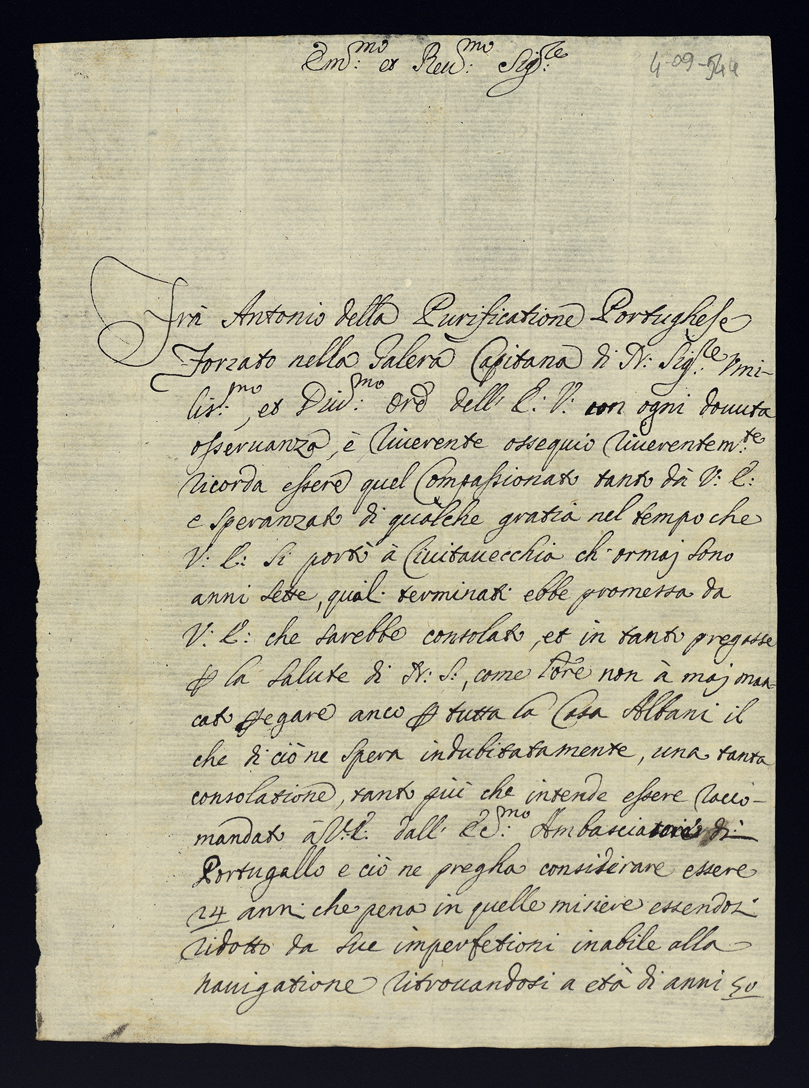 Em:mo et Reu:mo Sig:re
4-09-544
Frà Antonio della Purificatione Portughese
Forzato nella Galera Capitana di N: Sig:re Vmi-
lis:mo, et Diu:mo Ore dell' E: V: con ogni douuta
osseruanza, è riuerente ossequio riuerentem:te
ricorda essere quel Compassionato tanto dà V: E:
e speranzato di qualche gratia nel tempo che
V: E: si portò à Ciuitauecchia ch' ormaj sono
anni sette, quali terminati ebbe promessa da
V: E: che sarebbe consolato, et in tanto pregasse
p la salute di N: S:, come l'Ore non à maj man-
cato pregare anco p tutta la Casa Albani il
che di ciò ne spera indubitatamente, una tanta
consolatione, tanto più che intende essere racco-
mandato à V: E: dall' Ec:mo Ambasciatore di
Portugallo e ciò ne pregha considerare essere
24 anni che pena in quelle miserie essendosi
ridotto da sue imperfetioni inabile alla
nauigatione ritrouandosi a età di anni 50